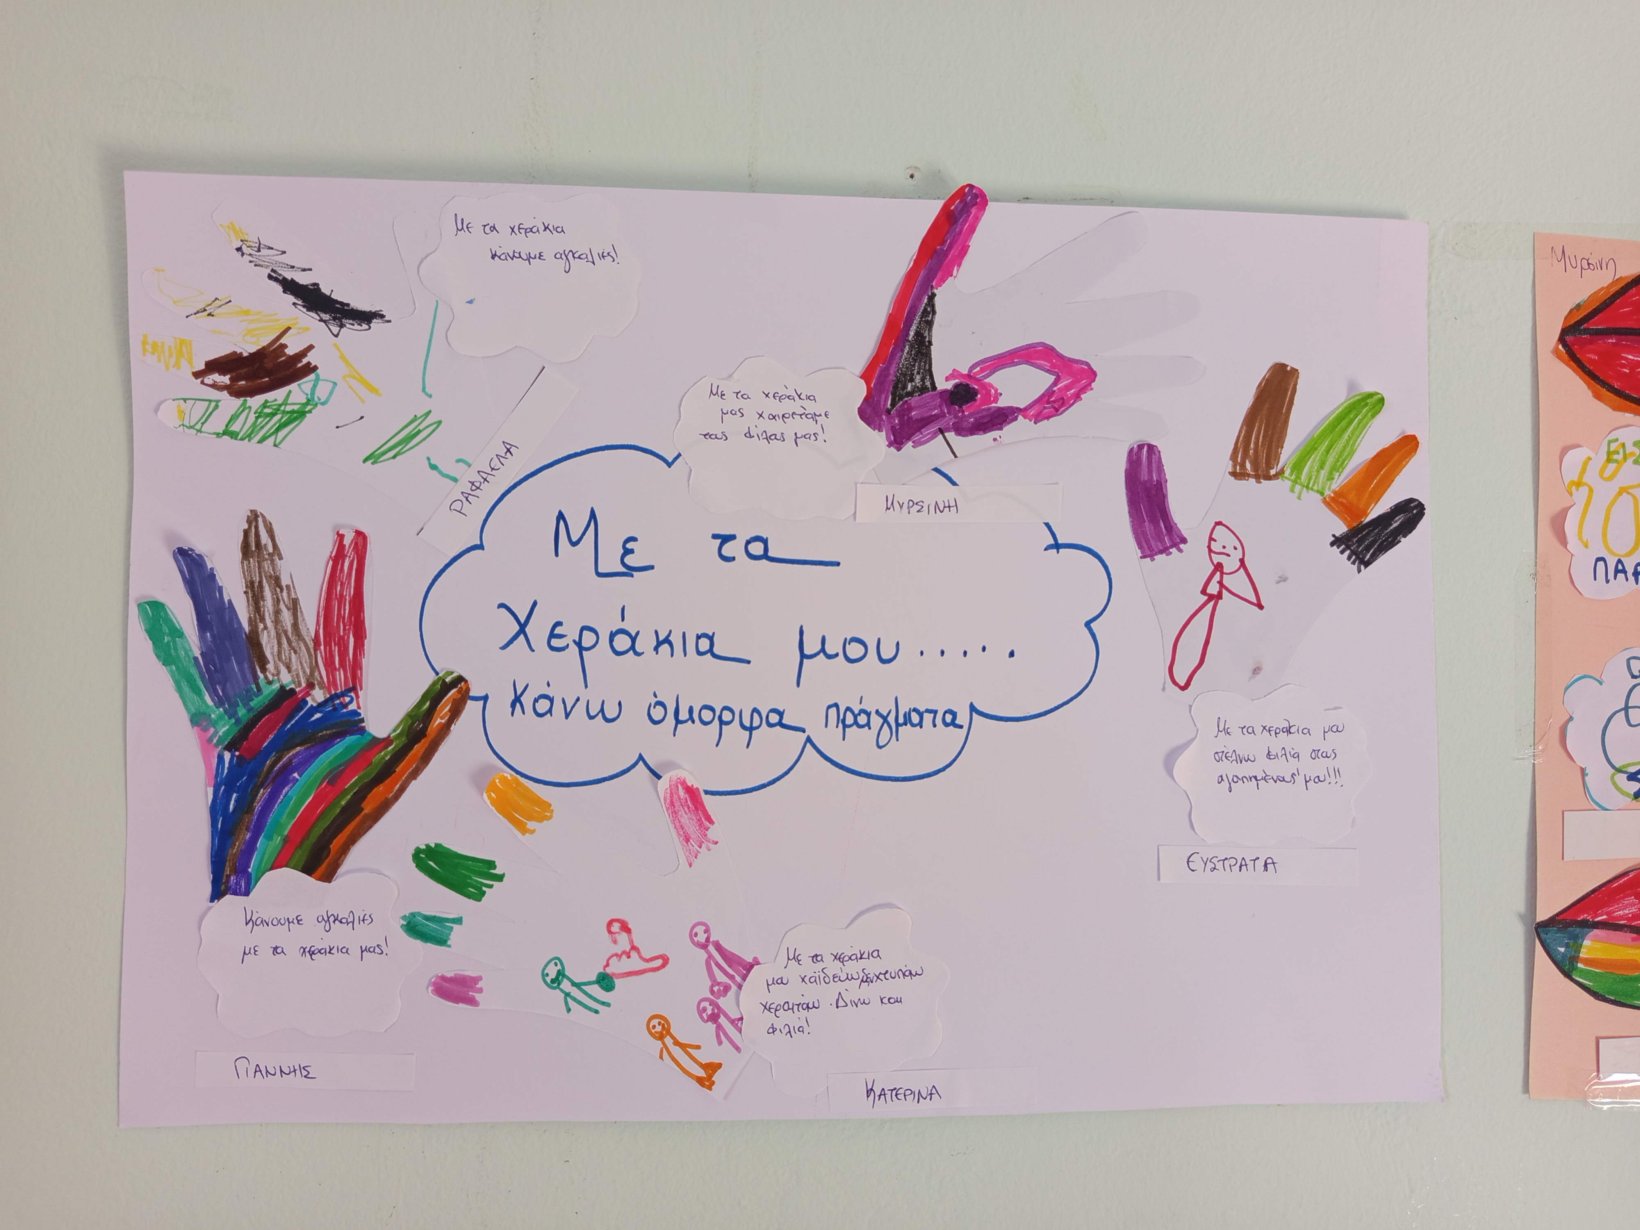 Με τα χεράκια
κάνουμε αγκαλιές!
ΡΑΦΑΕΛΑ
Με τα χεράκια
μας χαιρετάμε
τους φίλους μας!
ΜΥΡΣΙΝΗ
Με τα
Χεράκια μου.....
Κάνω όμορφα πράγματα
Με τα χεράκια μου
στέλνω φιλιά στους
αγαπημένους μου!!!
ΕΥΣΤΡΑΤΑ
Κάνουμε αγκαλιές
με τα χεράκια μας!
ΓΙΑΝΝΗΣ
Με τα χεράκια
μου χαϊδεύω
Δίνω και
φιλιά!
ΚΑΤΕΡΙΝΑ
Μυρσίνη